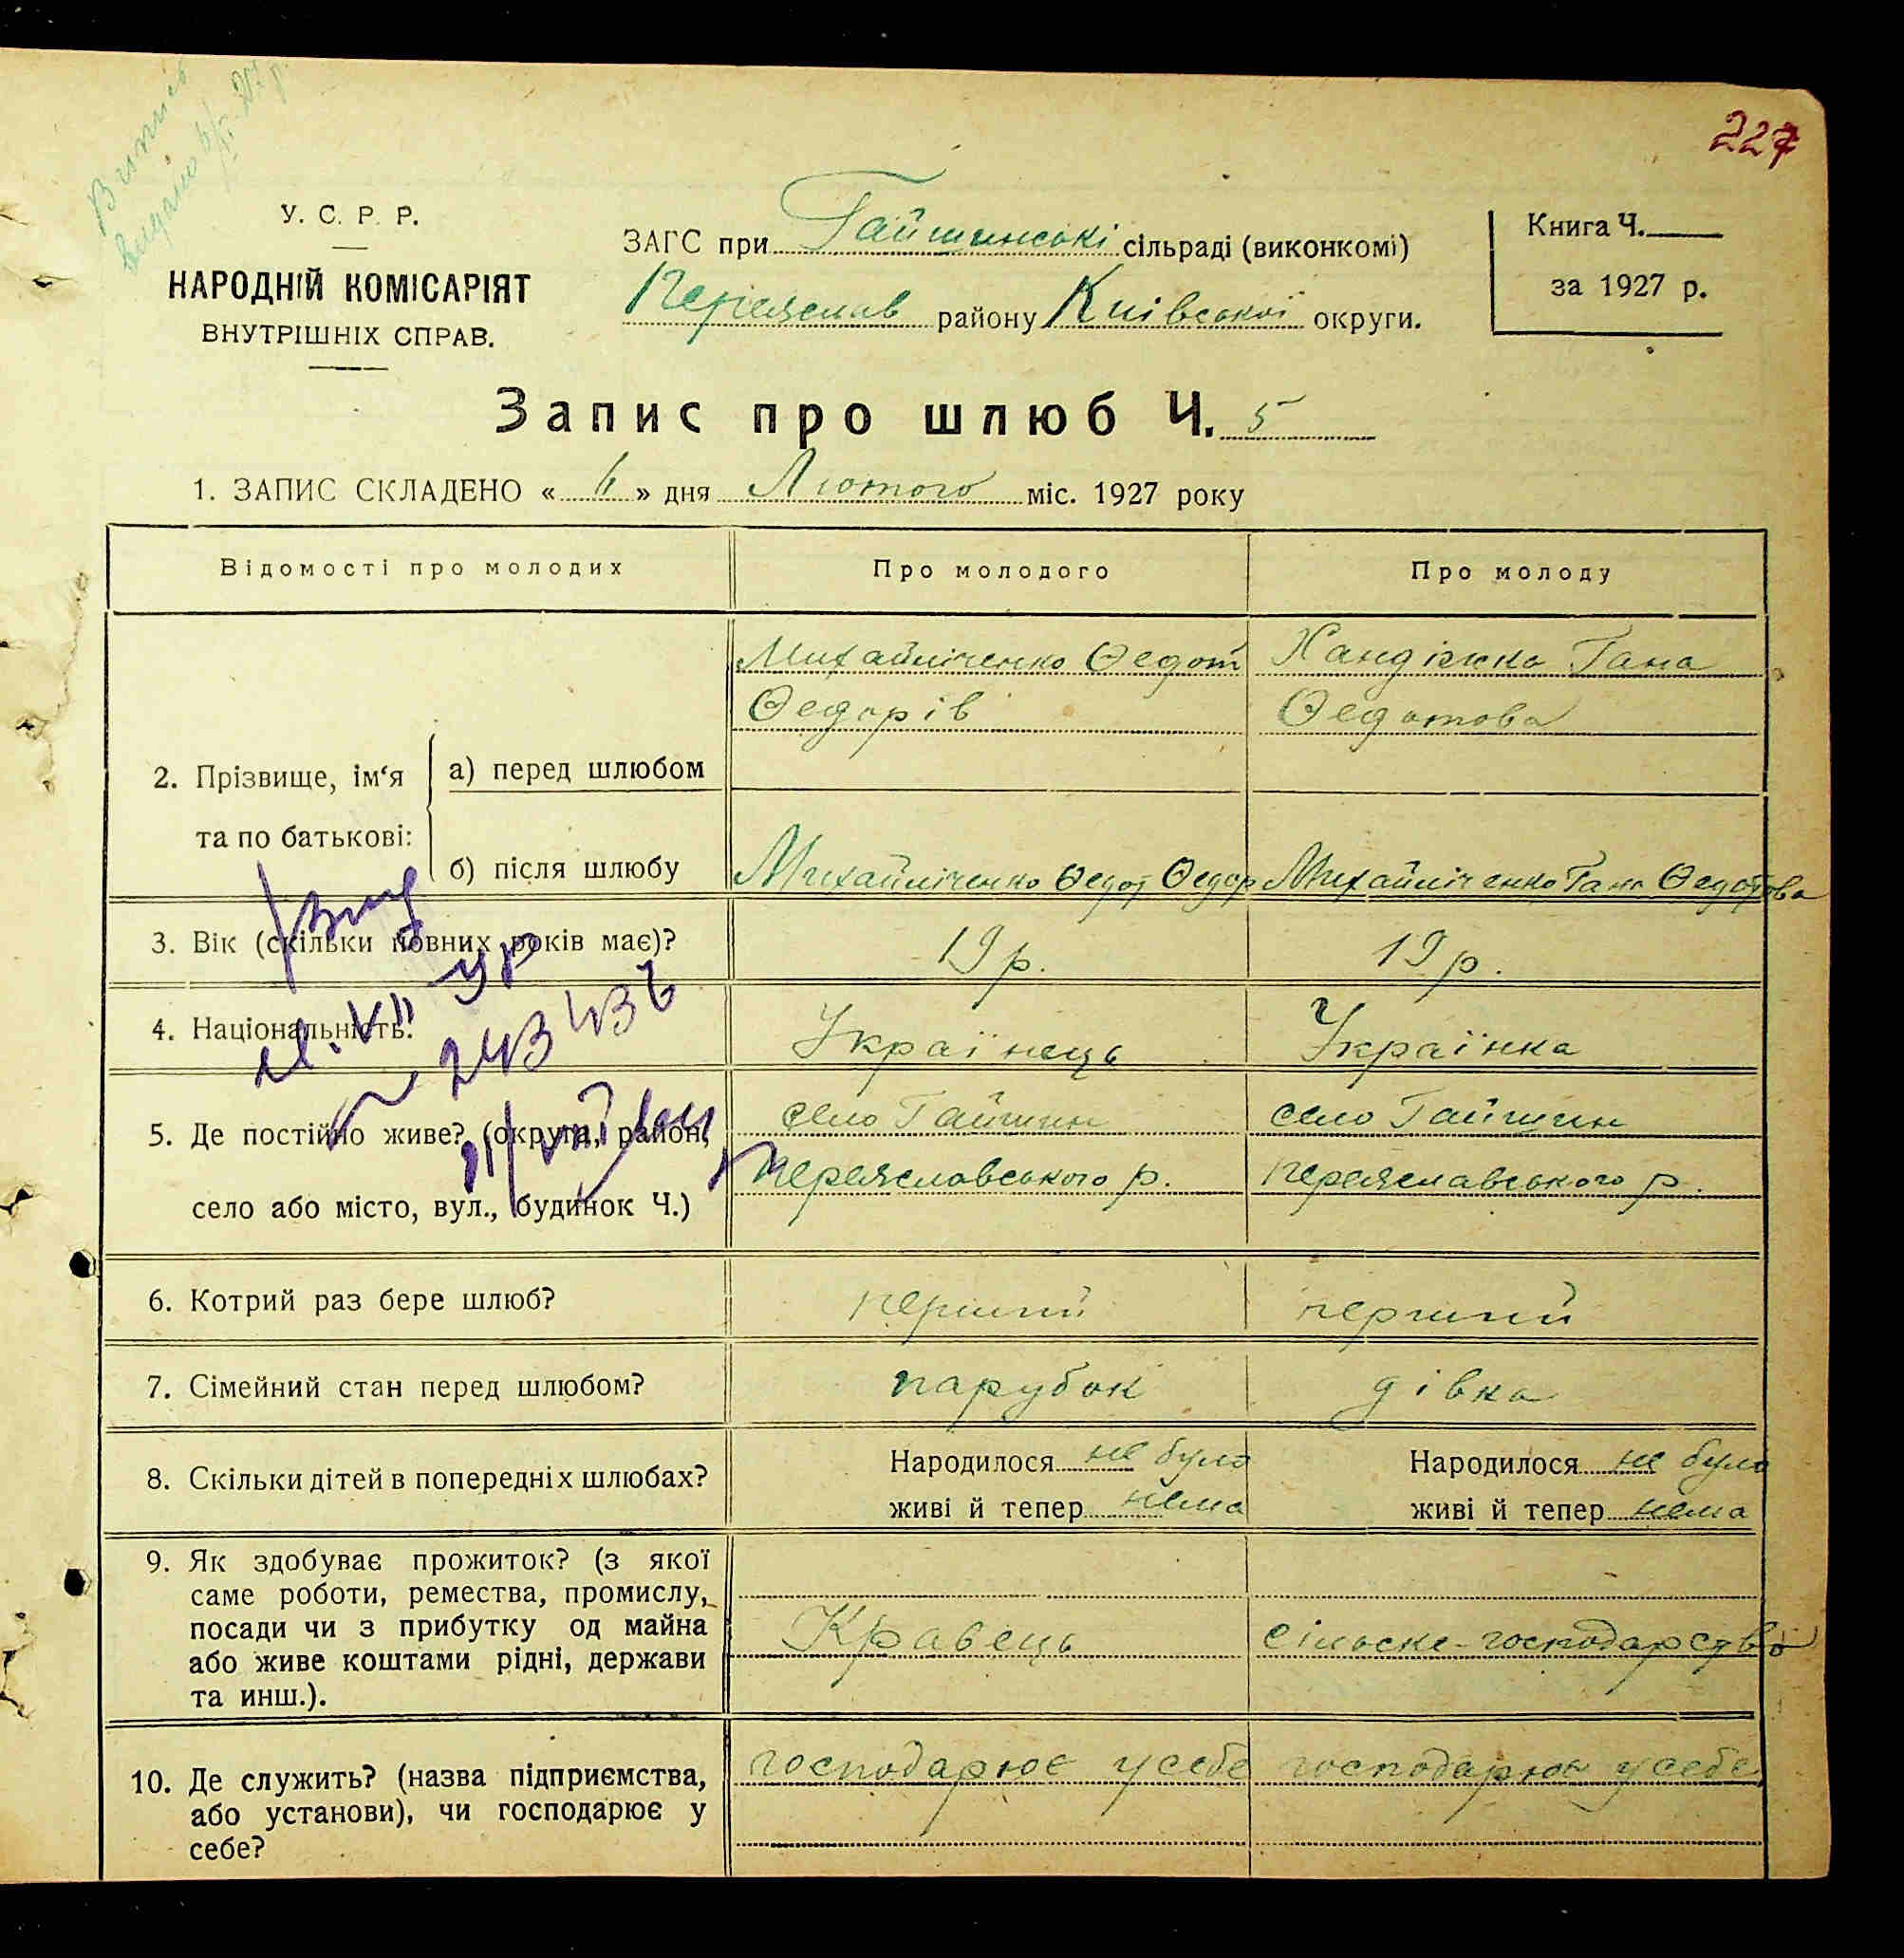 Випись
видано
227
У. С. Р. Р.
НАРОДНІЙ КОМІСАРІЯТ
ВНУТРІШНІХ СПРАВ.
ЗАГС при Гайшинські сільраді (виконкомі)
Переяслав району Київської округи.
Книга Ч.
за 1927 р.
Запис про шлюб Ч. 5
1. ЗАПИС СКЛАДЕНО « » дня Лютого міс. 1927 року
Відомості про молодих
Про молодого
Про молоду
2. Прізвище, ім‘я
та по батькові:
а) перед шлюбом
Михайліченко Ѳедот
Ѳедорів
Гана
Ѳедотова
б) після шлюбу
Михайліченко Ѳедот Ѳедор
Михайліченко Гана Ѳедотова
3. Вік (скільки повних років має)?
19 р.
19 р.
4. Національність.
Українець
Українка
243436
5. Де постійно живе? (округа, район,
село або місто, вул., будинок Ч.)
село Гайшин
Переяславського р.
село Гайшин
Переяславського р.
6. Котрий раз бере шлюб?
перший
перший
7. Сімейний стан перед шлюбом?
парубок
дівка
8. Скільки дітей в попередніх шлюбах?
Народилося не було
живі й тепер нема
Народилося не було
живі й тепер нема
9. Як здобуває прожиток? (з якої
саме роботи, ремества, промислу,
посади чи з прибутку од майна
або живе коштами рідні, держави
та инш.).
Кравець
сільське-господарство
10. Де служить? (назва підприємства,
або установи), чи господарює у
себе?
господарює у себе
господарює у себе